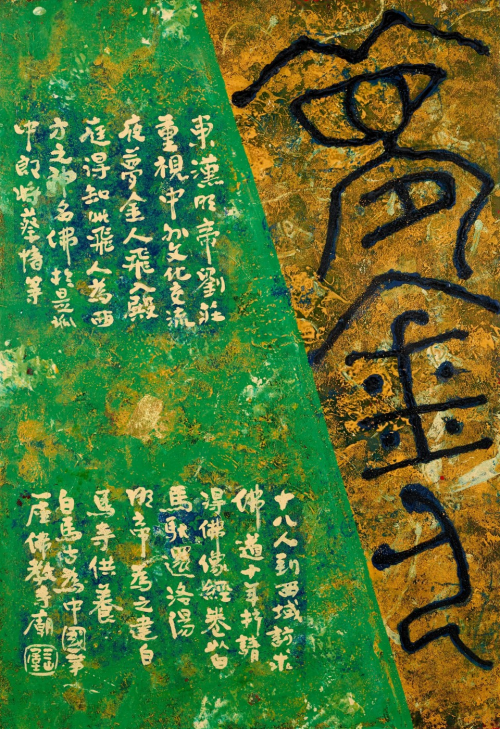 夢金人
東漢明帝劉莊
重視中外文化交流
夜夢金人飛入殿
庭得知此飛人為西
方之神名佛於是派
中郎將蔡愔等
十八人到西域訪求
佛道十年請
得佛像經卷白
馬馱還洛陽
明帝為之建白
馬寺供養
白馬寺為中國第
一座佛教寺廟